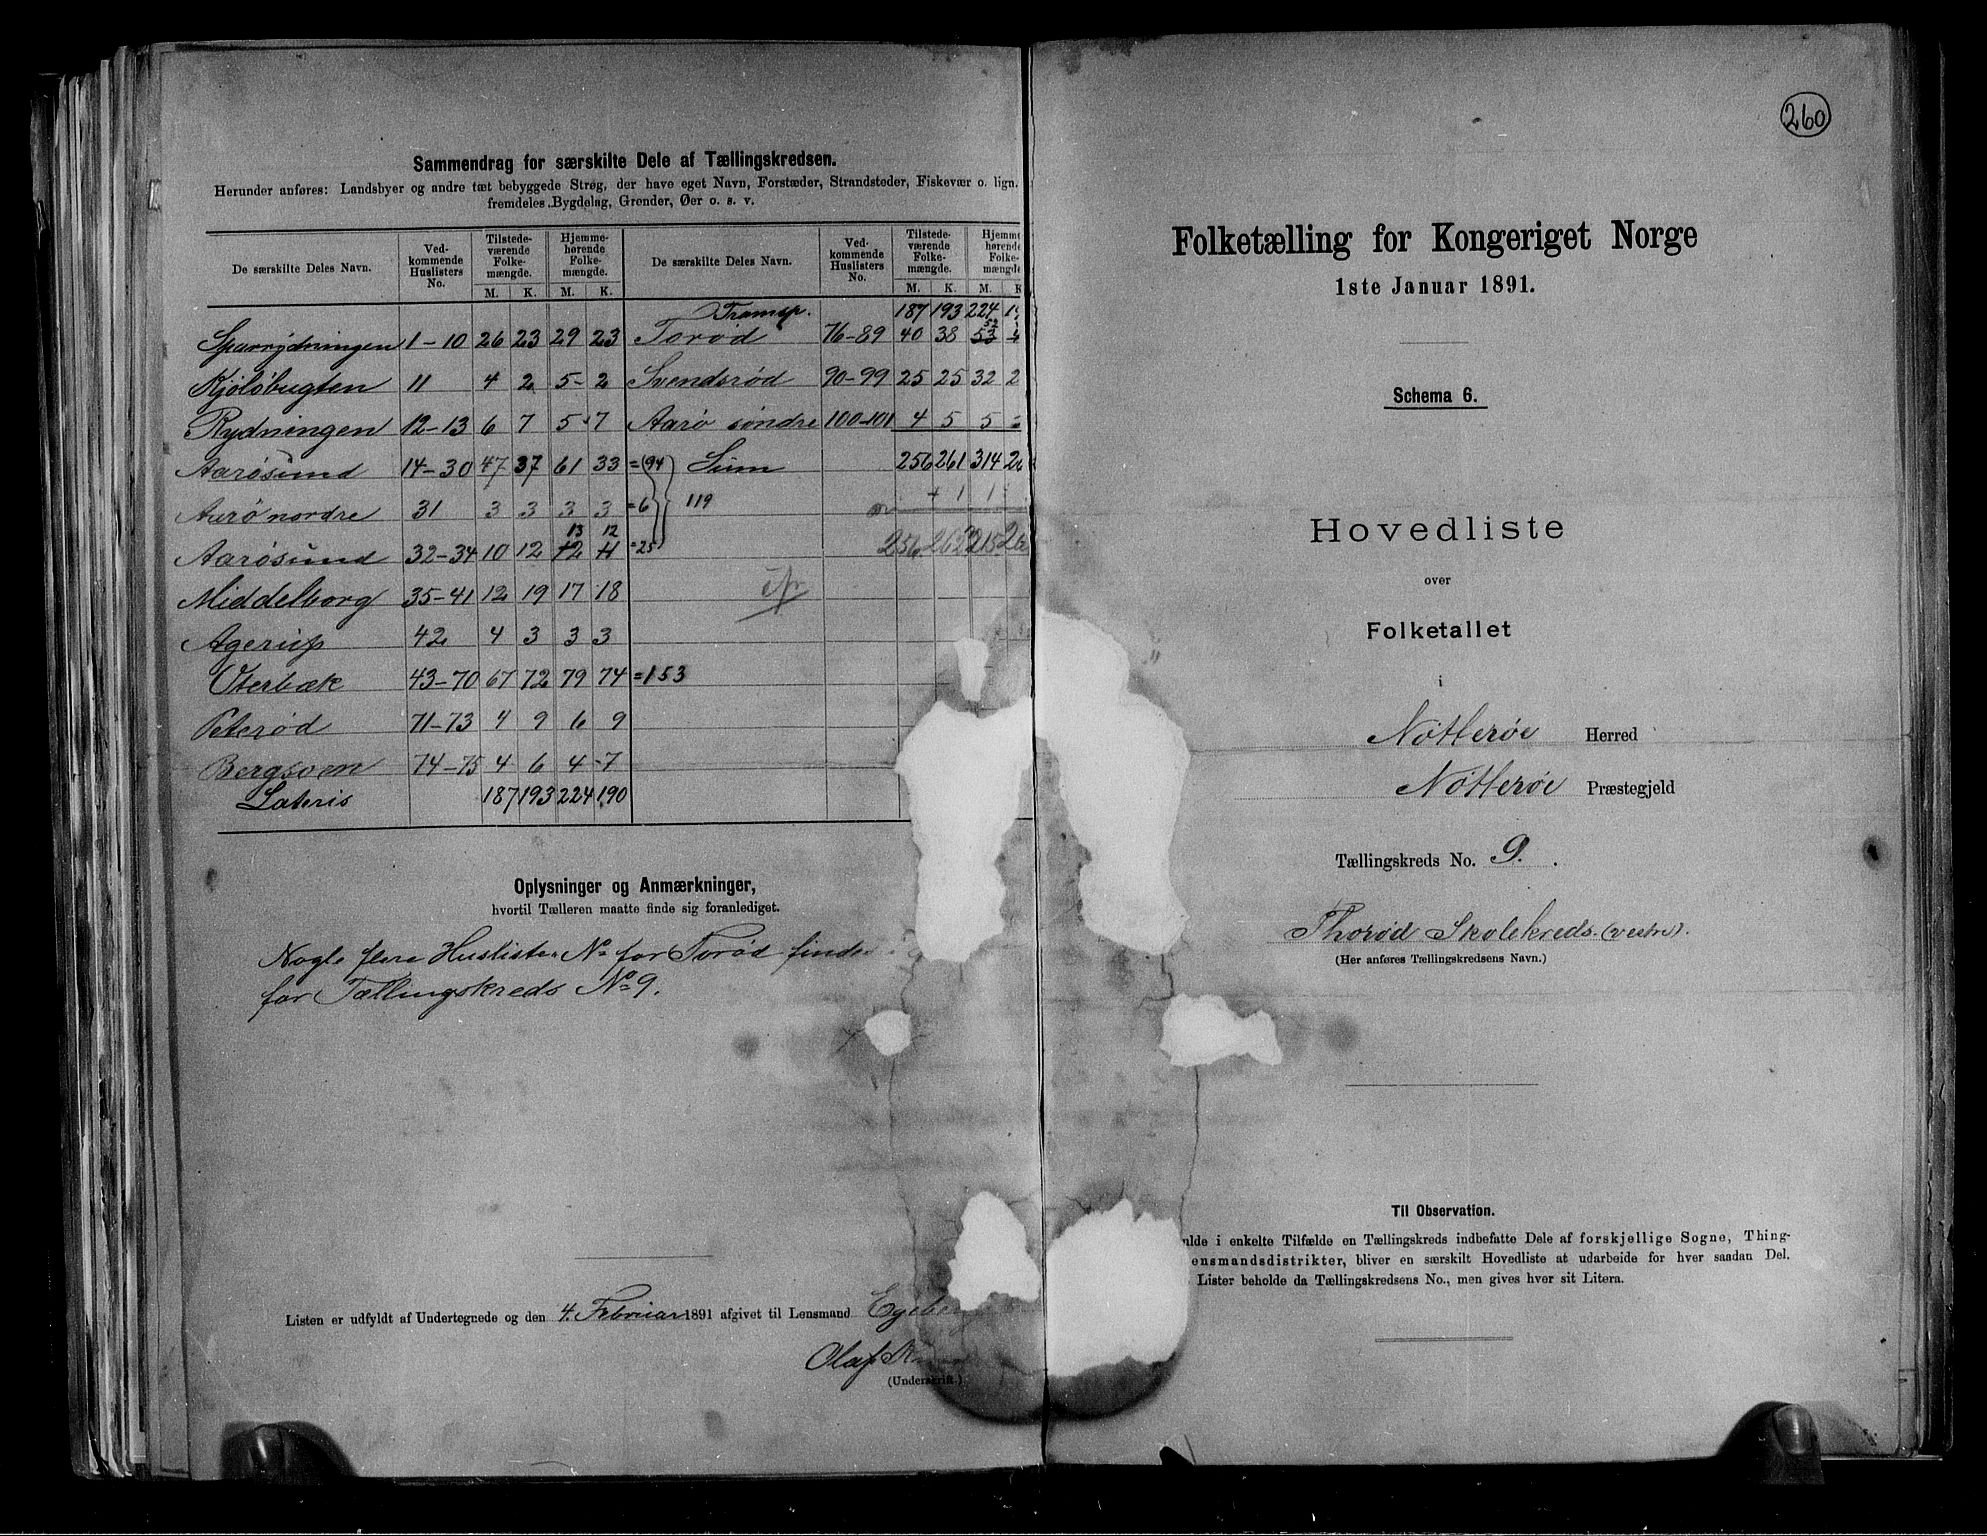 Sammendrag for særskilte Dele af Tællingskredsen.
Herunder anføres: Landsbyer og andre tæt bebyggede Strøg, der have eget Navn, Forstæder, Strandsteder, Fiskevær o. lign.
fremdeles Bygdelag, Grender, Øer o. s. v.
De særskilte Deles Navn. Ved-kommende Huslisters No. Tilstede-værende Folke-mængde. Hjemme-hørende Folke-mængde. De særskilte Deles Navn. Ved-kommende Huslisters No. Tilstede-værende Folke-mængde. Hjemme-hørende Folke-mængde
M. K. M. K. M. K. M. K
Transp. 187 193 224
Sparrydningen 1-10 26 23 29 23 Torød 76-89 40 38 53 52
Kjøløbugten 11 4 2 5 2 Svendsrød 90-99 25 25 32
Rydningen 12-13 6 7 5 7 Aarø søndre 100-101 4 5 5
Aarøsund 14-30 47 37 61 33 =(94 Sum 256 261 314
Aarø nordre 31 3 3 3 3 =6 119 + 1 1
Aarøsund 32-34 10 12 12 13 11 12 =25 256 262 315
Middelborg 35-41 12 19 17 18
Agerup 42 4 3 3 3
Oterbæk 43-70 67 72 79 74 =153
Peterød 71-73 4 9 6 9
Bergsoen 74-75 4 6 4 7
Lateris 187 193 224 190
Oplysninger og Anmærkninger,
hvortil Tælleren maatte finde sig foranlediget.
Nogle flere Huslister No for Torød finde
for Tællingskreds No 9.
Listen er udfyldt af Undertegnede og den 4. Februar 1891 afgivet til Lensmand Egeber
Olaf
(Underskrift.)
260
Folketælling for Kongeriget Norge
1ste Januar 1891.
Schema 6.
Hovedliste
over
Folketallet
i
Nøtterøe Herred
Nøtterøe Præstegjeld
Tællingskreds No. 9.
Thorød Skolekreds (vestre).
(Her anføres Tællingskredsens Navn.)
Til Observation.
ulde i enkelte Tilfælde en Tællingskreds indbefatte Dele af forskjellige Sogne, Thing-
ensmandsdistrikter, bliver en særskilt Hovedliste at udarbeide for hver saadan Del.
Lister beholde da Tællingskredsens No., men gives hver sit Litera.